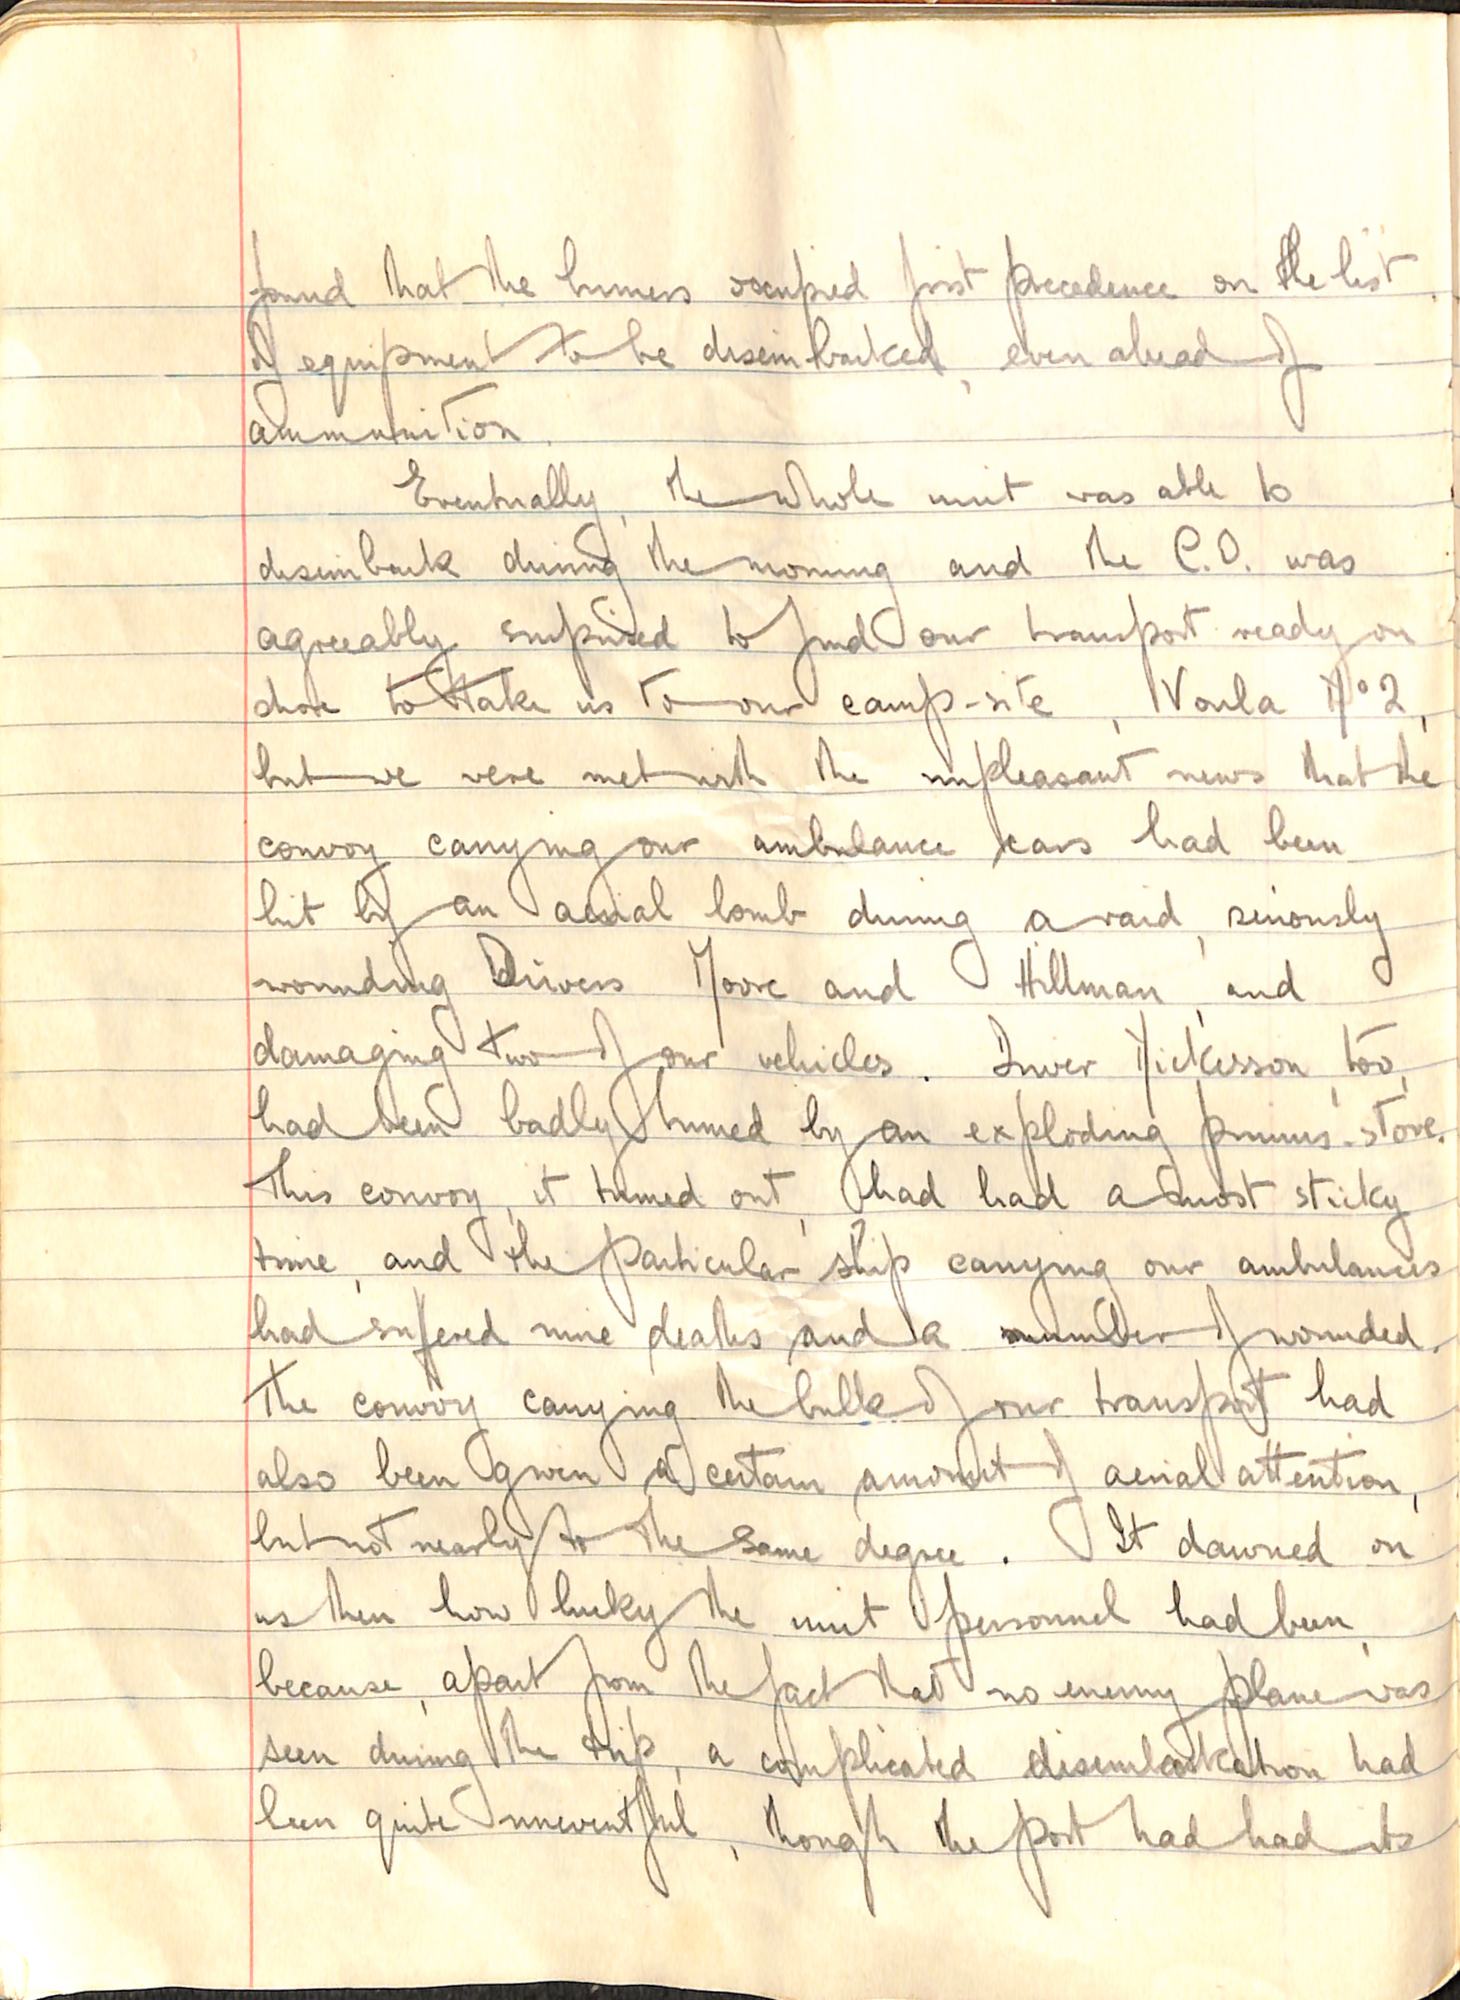 found that the burners occupied first precedence on the list
of equipment to be disembarked, even ahead of
ammunition.
Eventually, the whole unit was able to
disembark during the morning and the C.O. was
agreeably surprised to find our transport ready on
shore to take us to our camp-site, Voula No 2,
but we were met with the unpleasant news that the
convoy carrying our ambulance cars had been
hit by an aerial bomb during a raid, seriously
wounding Drivers Moore and Hillman, and
damaging two of our vehicles. Driver Nickisson, too,
had been badly burned by an exploding primus-stove.
This convoy, it turned out, had had a most sticky
time, and the particular ship carrying our ambulances
had suffered nine deaths and a number of wounded.
The convoy carrying the bulk of our transport had
also been given a certain amount of aerial attention,
but not nearly to the same degree. It dawned on
us then how lucky the unit personnel had been,
because, apart from the fact that no enemy plane was
seen during the trip, a complicated disembarkation had
been quite uneventful, though the port had had its